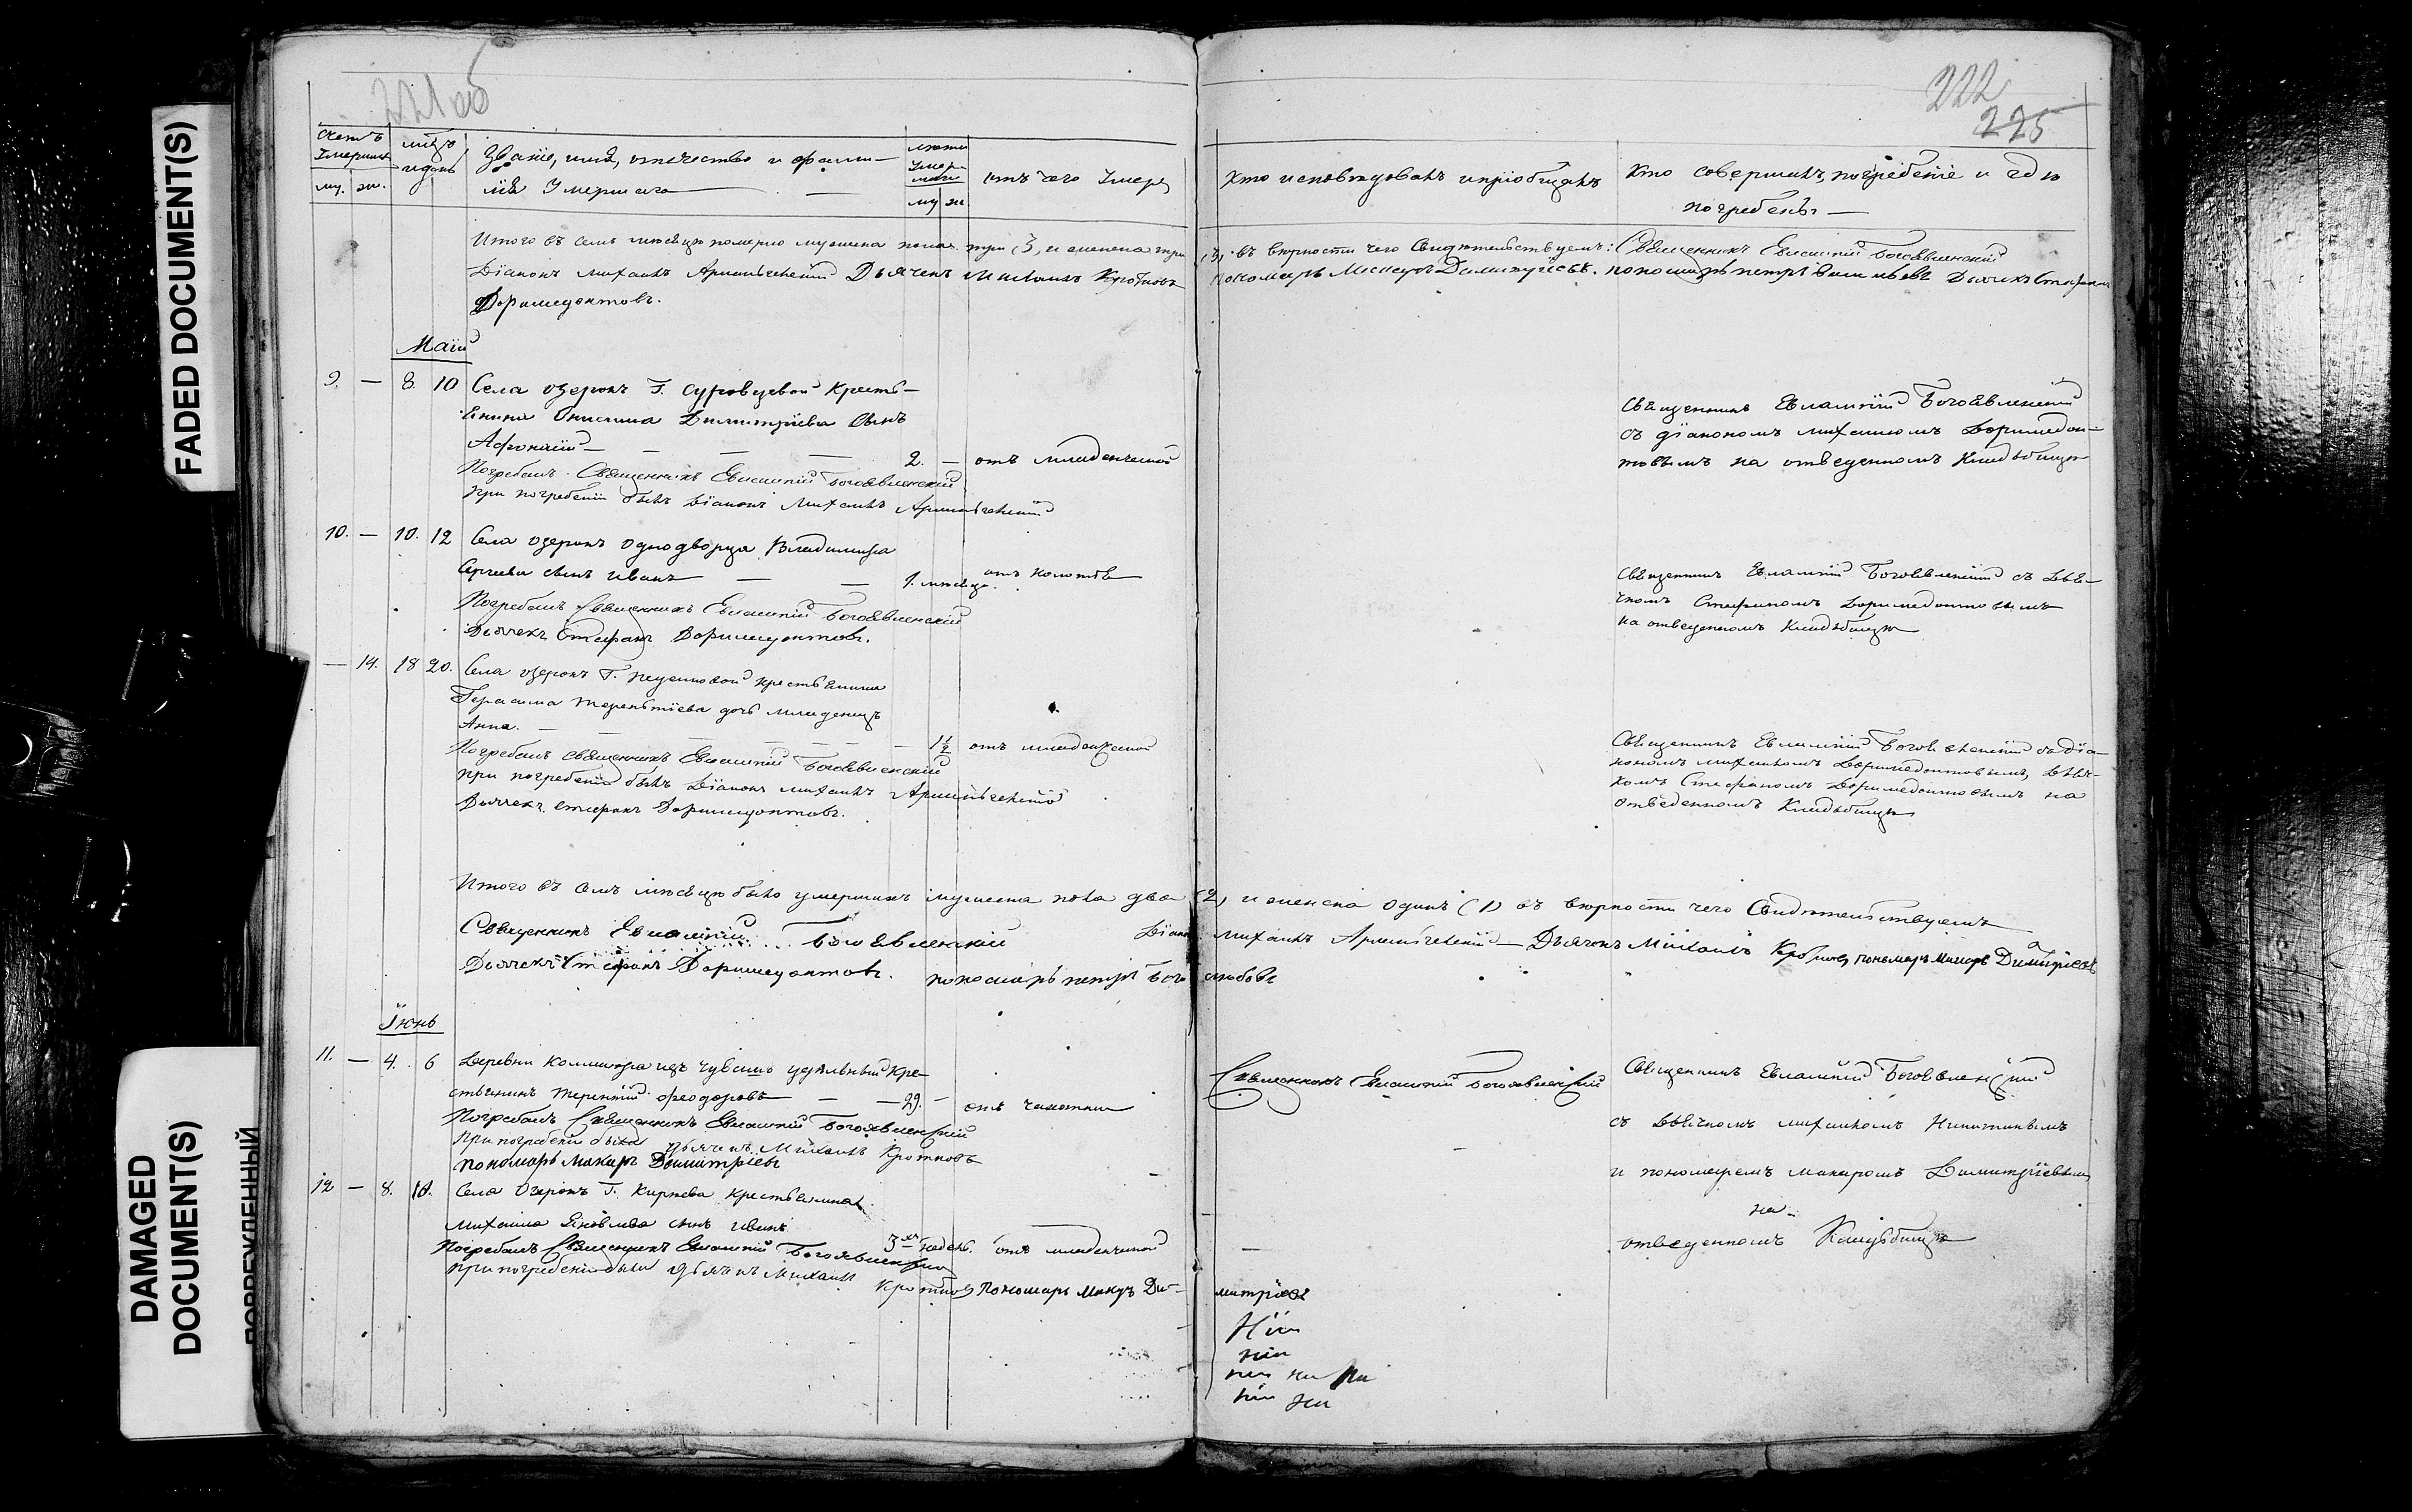 FADED DOCUMENT(S)
DAMAGED
DOCUMENT(S)
ПОВРЕЖДЕННЫЙ
221об
222
225
Счетъ
Умершихъ
му. же.
мцъ
и день
Званіе, имя, отчество и фами-
лія Умершаго
лѣта
Умер-
шаго
му же.
отъ чего Умеръ
Кто исповѣдовалъ и пріобщалъ
Кто совершалъ погребеніе и гдѣ
погребенъ
Итого въ семъ мѣсяцѣ померло мужеска пола три (3, и женска три (3, въ вѣрности чего Свидѣтельствуемъ: Священникъ Евлампій Богоявленскій
Діаконъ Михаилъ Дьячекъ Михаилъ Кротковъ Пономарь Макаръ Димитріевъ. пономарь петръ Дьячекъ Стефанъ
Доримедонтовъ.
Маій
9. — 8. 10 Села озерокъ Г. Суровцевой Кресть-
янина Онисима Димитріева сынъ
Афонасій — 2. — отъ младенческой
Погребалъ Священникъ Евлампій Богоявленскій
при погребеніи былъ Діаконъ Михаилъ
Священникъ Евлампій Богоявленскій
съ діакономъ михаиломъ Доримедон-
товымъ на отведенномъ Кладбищѣ
10. — 10. 12 Села озерокъ однодворца Владимира
Сергеева сынъ иванъ — 1. мѣсяца. отъ колотья
Погребалъ Священникъ Евлампій Богоявленскій
Дьячекъ Стефанъ Доримедонтовъ.
Священникъ Евлампій Богоявленскій съ дья-
чкомъ Стефаномъ Доримедонтовымъ
на отведенномъ Кладбищѣ
— 14. 18 20. Села озерокъ Г. крестьянина
Герасима терентіева дочь младенецъ
Анна. — 1½ отъ младенческой
Погребалъ священникъ Евлампій Богоявленскій
при погребеніи былъ Діаконъ михаилъ
Дьячекъ стефанъ Доримедонтовъ.
Священникъ Евлампій Богоявленскій съ діа-
кономъ михаиломъ Доримедонтовымъ, дьяч-
комъ Стефаномъ Доримедонтовымъ на
отведенномъ Кладбищѣ
Итого въ семъ мѣсяцѣ было умершихъ мужеска пола два (2, и женска одинъ (1) въ вѣрности чего Свидѣтельствуемъ
Священникъ Евлампій Богоявленскій Діаконъ михаилъ — Дьячекъ Михаилъ Кротковъ пономарь Макаръ Димитріевъ
Дьячекъ Стефанъ Доримедонтовъ. пономарь петръ Боголюбовъ
Іюнь
11. — 4. 6 Деревни изъ чувашъ удѣльный кре-
стьянинъ терентій феодоровъ — 29. — отъ чахотки
Погребалъ Священникъ Евлампій Богоявленскій
При погребеніи были дьячекъ Михаилъ Кротковъ
пономарь Макаръ Димитріевъ
Священникъ Евлампій Богоявленскій
Священникъ Евлампій Богоявленскій
съ дьячкомъ михаиломъ Никитинымъ
и пономаремъ макаромъ Димитріевымъ
на
отведенномъ Кладбищѣ
12 — 8. 10. Села Озерокъ Г. крестьянина
михаила Яковлева сынъ иванъ
3хъ недель. отъ младенческой
Погребалъ Священникъ Евлампій Богоявленскій
при погребеніи были дьячекъ Михаилъ Кротковъ Пономарь Макаръ Ди-
митріевъ